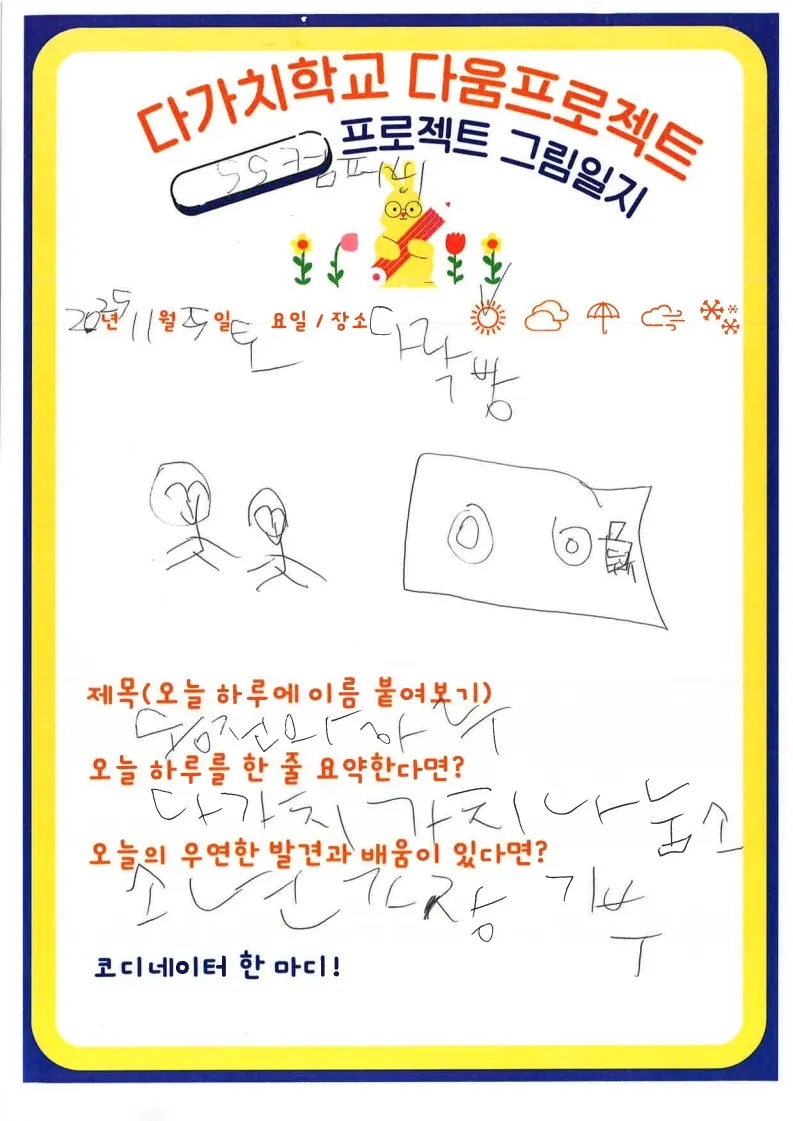 다가치학교 다움프로젝트
SS컴퍼니 프로젝트 그림일지
2025년 11월 25일 토요일 / 장소 다락방
제목(오늘 하루에 이름 붙여보기)
하루
오늘 하루를 한 줄 요약한다면?
다가치 가치나눔소
오늘의 우연한 발견과 배움이 있다면?
소년가장 기부
코디네이터 한 마디!